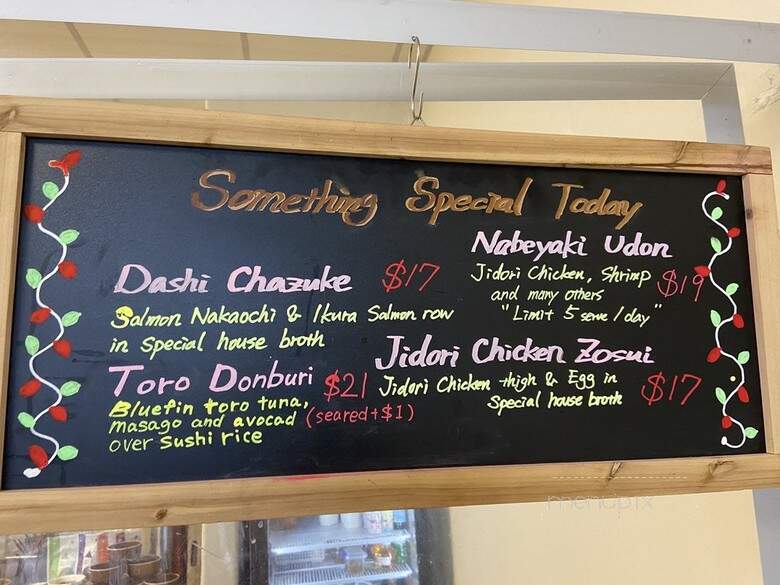 Something Special Today
Dashi Chazuke $17
Salmon Nakaochi & Ikura Salmon row
in Special house broth
Toro Donburi $21
Bluefin toro tuna,
masago and avocad (seared+$1)
over sushi rice
Nabeyaki Udon
Jidori Chicken, Shrimp $19
and many others
"Limit 5 serve / day"
Jidori Chicken Zosui
Jidori Chicken thigh & Egg in $17
Special house broth
menupix